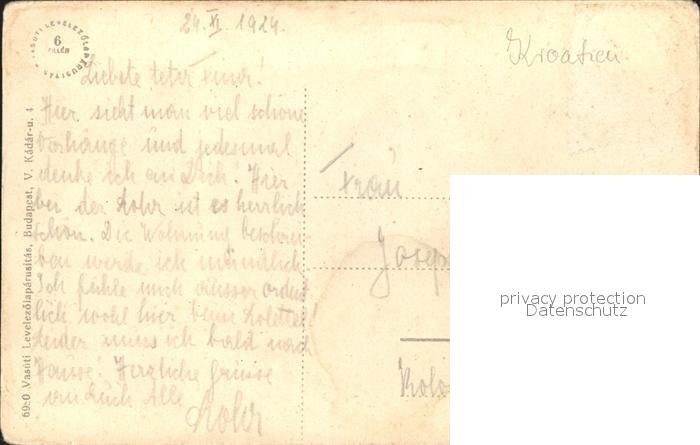 24. XI. 1924.
Kroatien
VASUTI LEVELEZŐLAPÁRUSITÁS
6
FILLÉR
Hier sieht man viel schöne
Vorhänge und jedesmal
denke ich an Dich! Hier
bei der Lohr ist es herrlich
schön. Die Wohnung beschrei-
ben werde ich mündlich.
Ich fühle mich ausser ordent
lich wohl hier beim
leider muss ich bald nach
Hause! Herzliche Grüsse
an Euch Alle
Lohr
Frau
Josep
Kolo
6920 Vasúti Levelezőlapárusitás, Budapest, V. Kádár-u. 4
privacy protection
Datenschutz